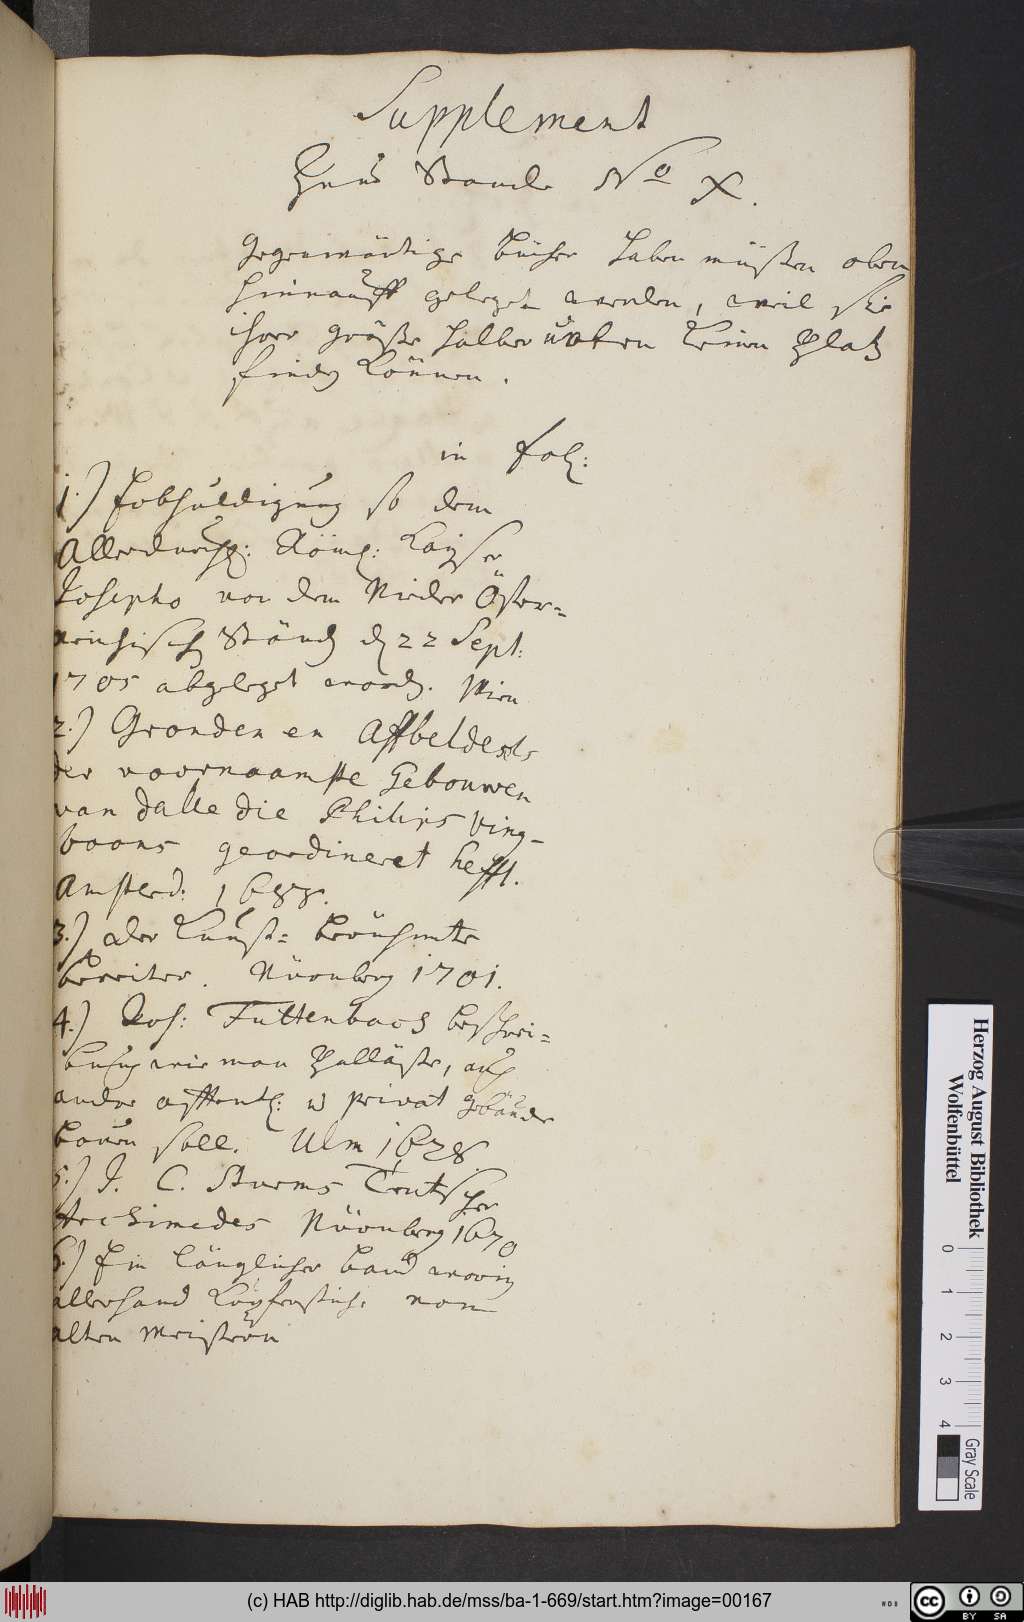 Supplement
Zum Stande No X.
Gegenwärtige Bücher haben müßen oben
hinauff geleget werden, weil sie
ihrer größe halber unten keinen Platz
finden können.
in fol:
1.) Erbhuldigung so dem
Allerdurchl: Röm: Kayser
Josepho von dem Nieder Öster=
reichisch Ständ d 22 Sept:
1705 abgeleget word. Wien
2.) Gronden en Affbeldesls
der voornaamste Gebouwen
van dalle die Philips Ving-
boons geordineret hefft.
Amsterd: 1688.
3.) Der Kunst= berühmte
Bereiter. Nürnberg 1701.
4.) Jos: Furttenbach beschrei=
bung wie man Palläste, auch
andre offentl: u privat Gebäude
bauen soll. Ulm 1678
5.) J. C. Sturms Teutscher
Archimedes Nürnberg 1670
6.) Ein länglicher Band worin
allerhand Kupferstiche von
alten Meistern
Herzog August Bibliothek
Wolfenbüttel
0 1 2 3 4
Gray Scale
(c) HAB http://diglib.hab.de/mss/ba-1-669/start.htm?image=00167
cc BY SA